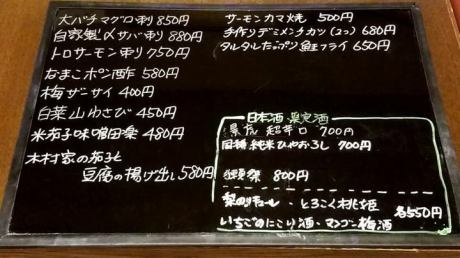 大バチマグロ刺 850円
自家製〆サバ刺 880円
トロサーモン刺 750円
なまこポン酢 580円
梅ザンサイ 400円
白菜山わさび 450円
米茄子味噌田楽 480円
木村家の茄子と
豆腐の揚げ出し 580円
サーモンカマ焼 500円
手作りデミメンチカツ(2つ) 680円
タルタルたっぷり鮭フライ 650円
日本酒・果実酒
超辛口 700円
純米ひやおろし 700円
800円
梨のリキュール・とろこく桃姫
各550円
いちごのにごり酒・マンゴー梅酒